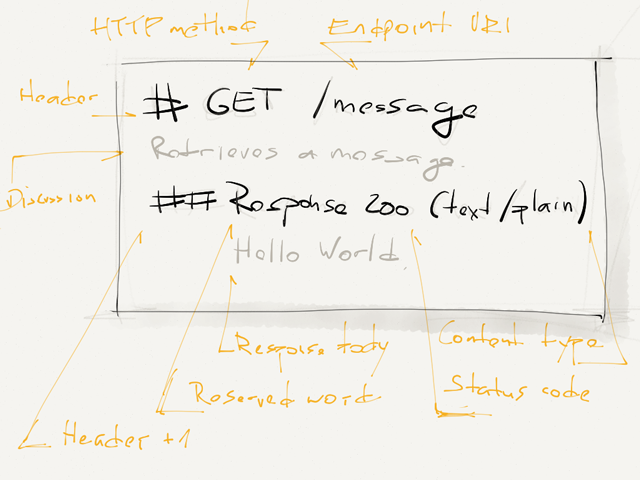 HTTP method Endpoint URI
Header
# GET /message
Retrieves a message.
Discussion
## Response 200 (text/plain)
Hello World.
Response body
Content type
Reserved word
Status code
Header +1